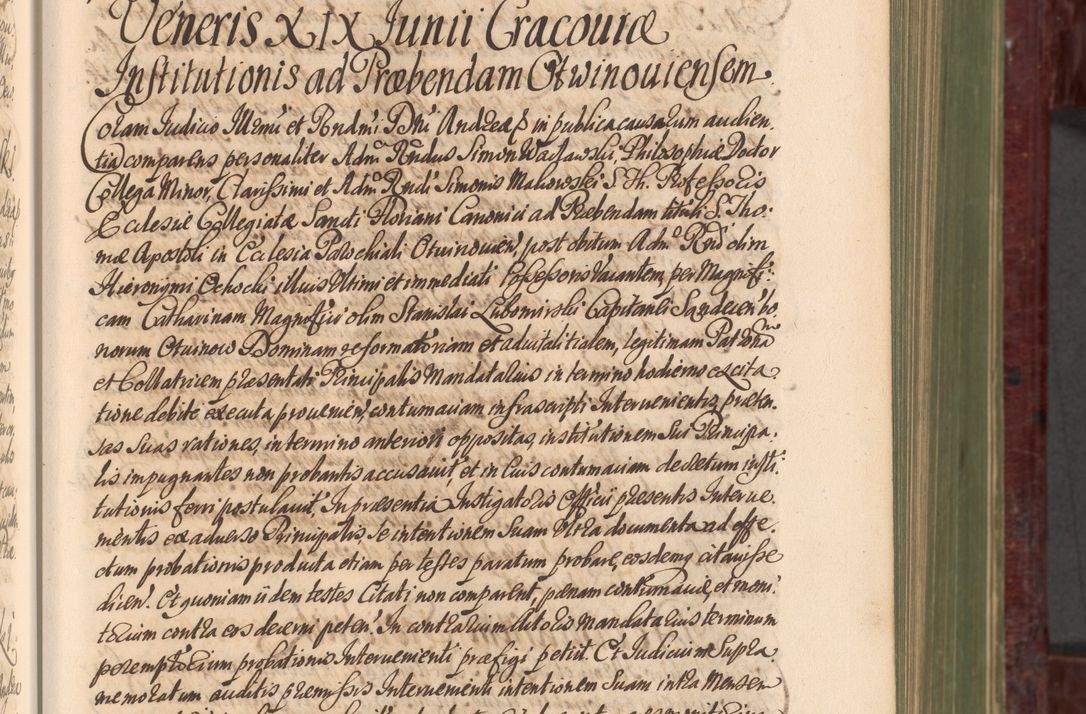 Veneris XIX Junii Cracoviæ
Institutionis ad Præbendam Otwinoviensem
Coram Judicio Illrmi et Rndmi Dni Andreæ in publica causarum audien,
tia comparens personaliter Adm Rndus Simon Wacławski, Philosophiæ Doctor
Collega Minor, Clarissimi et Adm Rndi Simonis Makowski S. Th. Professoris
Ecclesiæ Collegiatæ Sancti Floriani Canonici ad Præbendam tituli S. Tho:
mæ Apostoli in Ecclesia Parochiali Otuinouien, post obitum Adm Rnd olim
Hieronymi Ochocki illius Ultimi et immediati Possessoris Vacantem, per Magnifi:
cam Catharinam Magnifici olim Stanislai Lubomirski Capitanei Sandecen bo,
norum Otuinow Dominam reformatoriam et aduitalitialem, legitimam Patronam
et Collatricem præsentati Principalis Mandatarius in termino hodierno ex cita
tione debite executa prouenien, contumaciam infrascripti Interuenientis, præten,
sas suas rationes, in termino anteriori oppositas, institutionem Sui Principa,
lis impugnantes non probantis accusauit, et in Eius contumaciam decretum insti,
tutionis ferri postulauit, In præsentia Instigatoris Officii præsentis Interue
nientis ex aduerso Principalis, se intentionem Suam Ultra documenta ad effe,
ctum probationis producta etiam per testes paratum probare, eosdemq citauisse
dicen. Et quoniam iidem testes Citati non comparent, pœnam contumaciæ, et moni,
torium contra eos decerni peten. In contrarium Actoris Mandatarius terminum
peremptorium probationis Interuenienti præfigi petiit. Et Judicium Supra
nemoratum auditis præmissis Interuenienti intentionem Suam intra Mensem